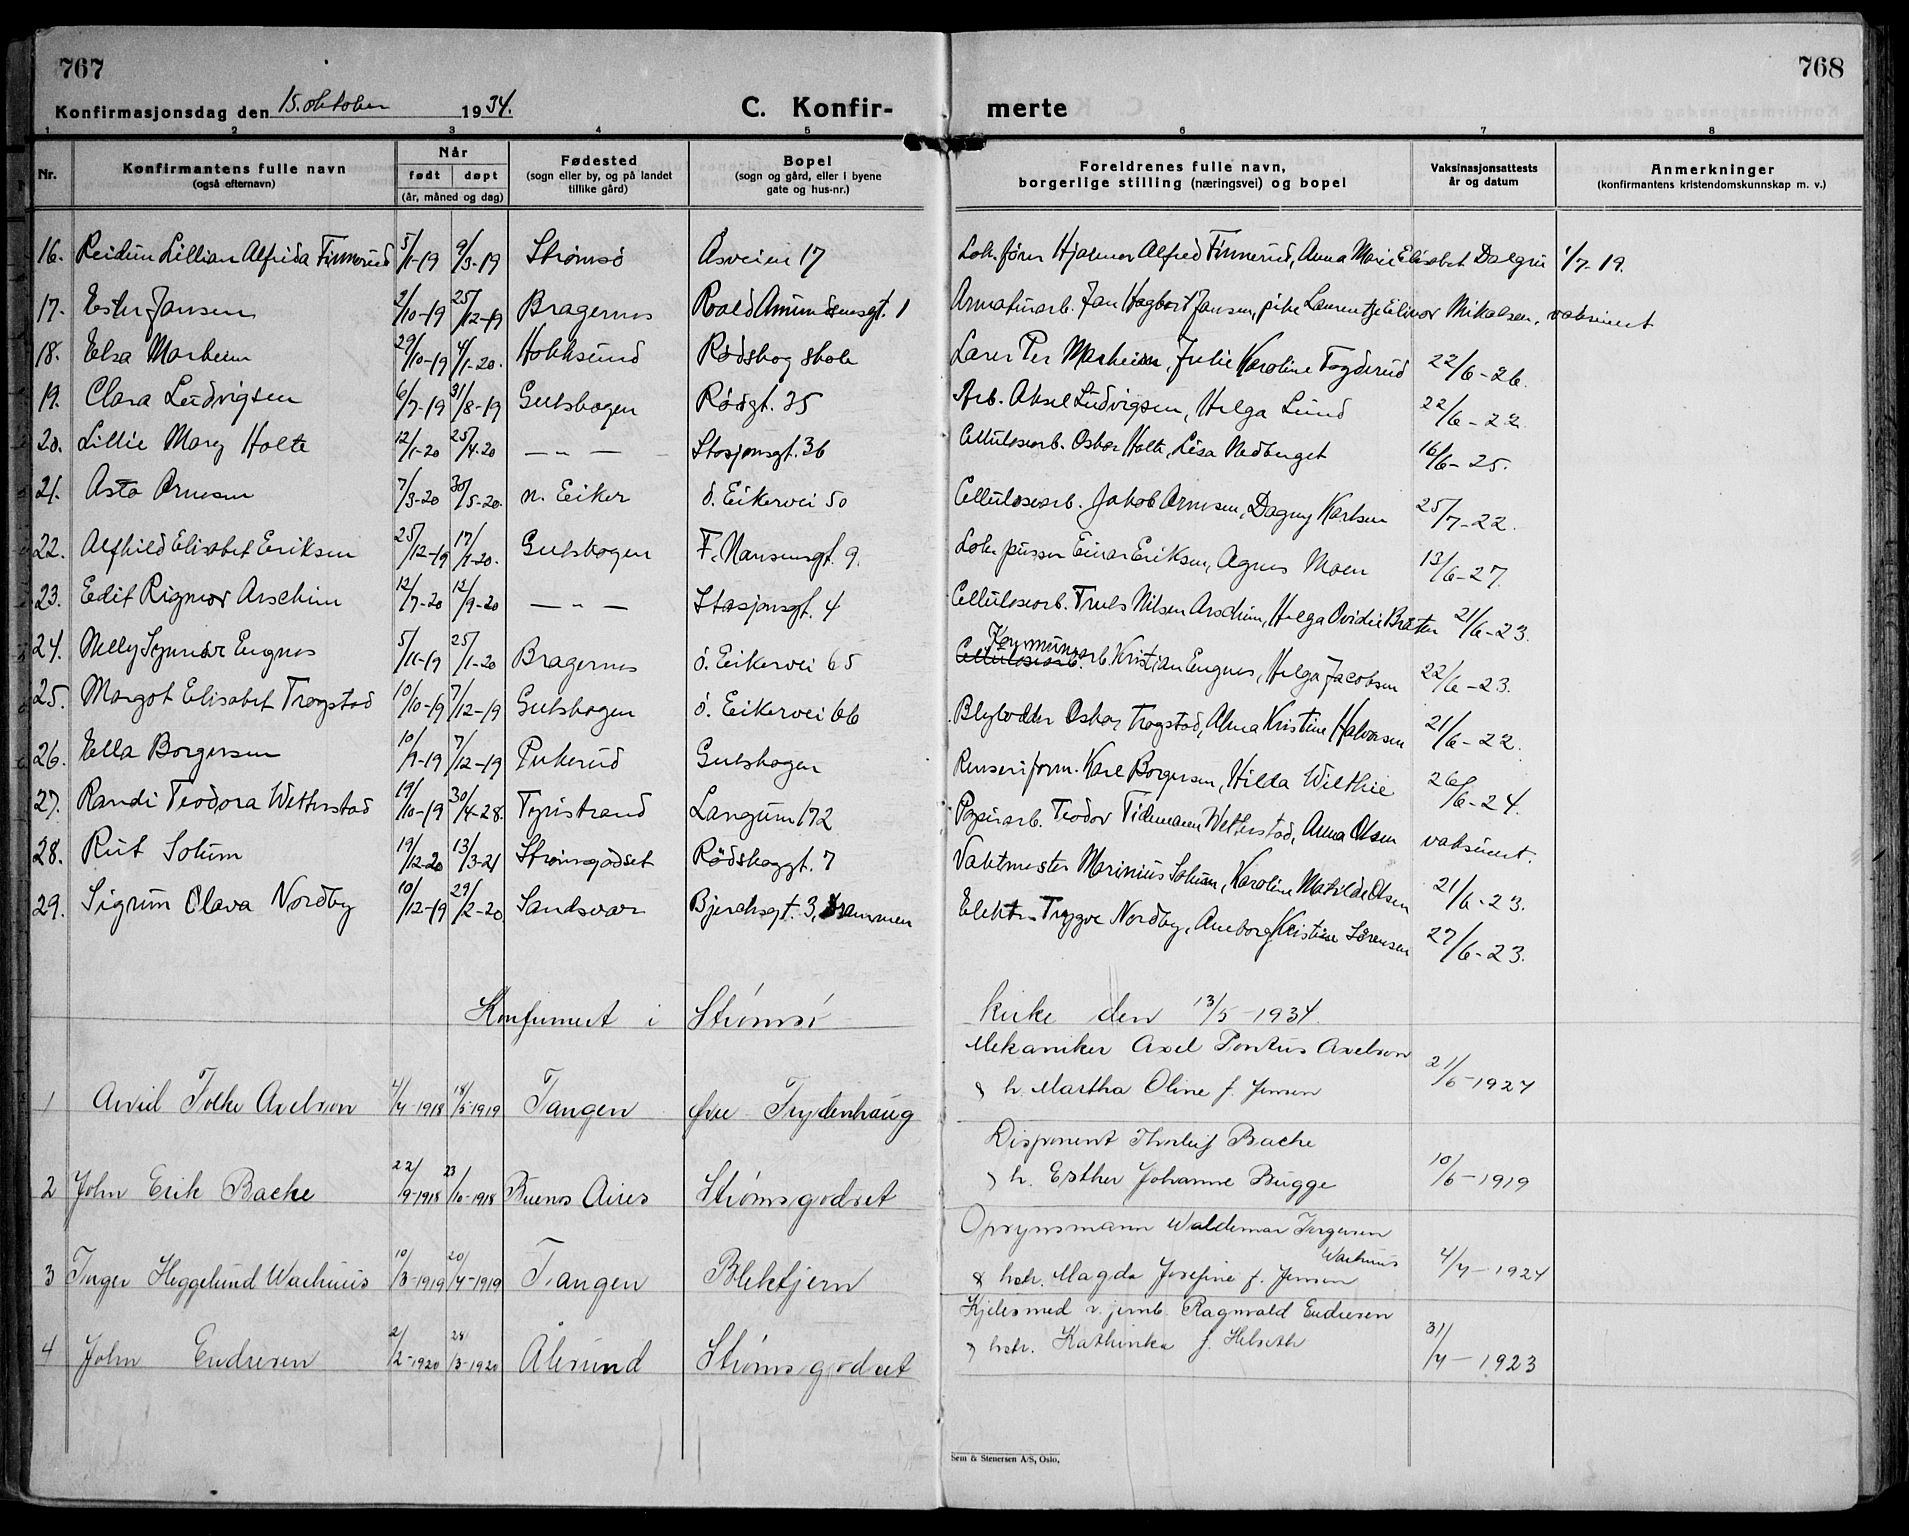 767
768
Konfirmasjonsdag den 15. oktober 1934.
C. Konfir-merte
1 2 3 4 5 6 7 8
Nr. Konfirmantens fulle navn (også efternavn) Når født døpt (år, måned og dag) Fødested (sogn eller by, og på landet tillike gård) Bopel (sogn og gård, eller i byene gate og hus-nr.) Foreldrenes fulle navn, borgerlige stilling (næringsvei) og bopel Vaksinasjonsattests år og datum Anmerkninger (konfirmantens kristendomskunnskap m. v.)
16. Reidun Lillian Alfrida Finnerud 5/1-19 9/3-19 Strømsø Åsveien 17 Lok.fører Hjalmar Alfred Finnerud, Anna Marie Elisabet Dalgru 1/7-19.
17. Ester Jansen 2/10-19 25/12-19 Bragernes Roald Amundsensgt. 1 Armaturarb. Jan Hagbart Jansen, pike Laurentze Elinor Mikalsen, vaksinert
18. Elsa Marheim 29/10-19 4/1-20. Hokksund Rødskog skole Lærer Per Marheim, Julie Karoline Fogderud 22/6-26.
19. Clara Ludvigsen 6/7-19 31/8-19 Gulskogen Rødgt. 35 Arb. Aksel Ludvigsen, Helga Lund 22/6-22.
20. Lillie Mary Holte 12/1-20 25/4-20 — „ — Stasjonsgt. 36 Celluloseorb. Oskar Holte, Lisa Nedberget 16/6-25.
21. Asta Arnesen 7/3-20 30/5-20. n. Eiker ö. Eikervei 50 Celluloseorb. Jakob Arnesen, Dagny Karlsen 25/7-22.
22. Alfhild Elisabet Eriksen 25/12-19 17/1-20. Gulskogen F. Nansensgt. 9. Lok. pusser Einar Eriksen, Agnes Moen 13/6-27.
23. Edit Rigmor Arscheim 12/7-20 12/9-20 — „ — Stasjonsgt. 4 Celluloseorb. Truls Nilsen Arscheim, Helga Ovidie Bråten 21/6-23.
24. Nelly Synnøve Engnes 5/11-19 25/1-20 Bragernes ö. Eikervei 65 Celluloseorb. Kommunearb. Kristian Engnes, Helga Jacobsen 22/6-23.
25. Margot Elisabet Trøgstad 10/10-19 7/12-19 Gulskogen ö. Eikervei 66 Blylodder Oskar Trøgstad, Alma Kristine Halvorsen 21/6-22.
26. Ella Borgersen 10/9-19 7/12-19 Pukerud Gulskogen Renseriform. Karl Borgersen, Hilda Wilthie 26/6-24.
27. Randi Teodora Wetterstad 19/10-19 30/4-28. Tyristrand Langum 172 Papirarb. Teodor Tidemann Wetterstad, Anna Olsen vaksinert.
28. Rut Solum 19/12-20 13/3-21 Strømsgodset Rødskoggt. 7 Vaktmester Marinius Solum, Karoline Matilde Olsen 21/6-23.
29. Sigrun Olava Nordby 10/12-19 29/2-20 Sandsvær Bjerchsgt. 3, Drammen Elektr. Trygve Nordby, Aneborg Kristine Sørensen 27/6-23.
Konfirmert i Strømsø kirke den 13/5-1934.
1 Arvid Folke Axelson 4/4-1918 18/5-1919 Tangen øvre Frydenhaug Mekaniker Axel Pontus Axelson & h. Martha Oline f. Jensen 21/6-1927
2 John Erik Backe 22/9-1918 23/10-1918 Buenos Aires Strømsgodset Disponent Thorleif Backe & h. Esther Johanne Bugge 10/6-1919
3 Inger Heggelund Warhuus 10/3-1919 20/4-1919 Tangen Blektjern Opsynsmann Waldemar Jørgensen Warhuus & hstr. Magda Josefine f. Jensen 4/4-1924
4 John Endresen 2/2-1920 28/3-1920 Ålesund Strømsgodset Kjelesmed v. jernb. Ragnvald Endresen & hstr. Kathinka f. Helseth 31/4-1923
Sem & Stenersen A/S, Oslo.